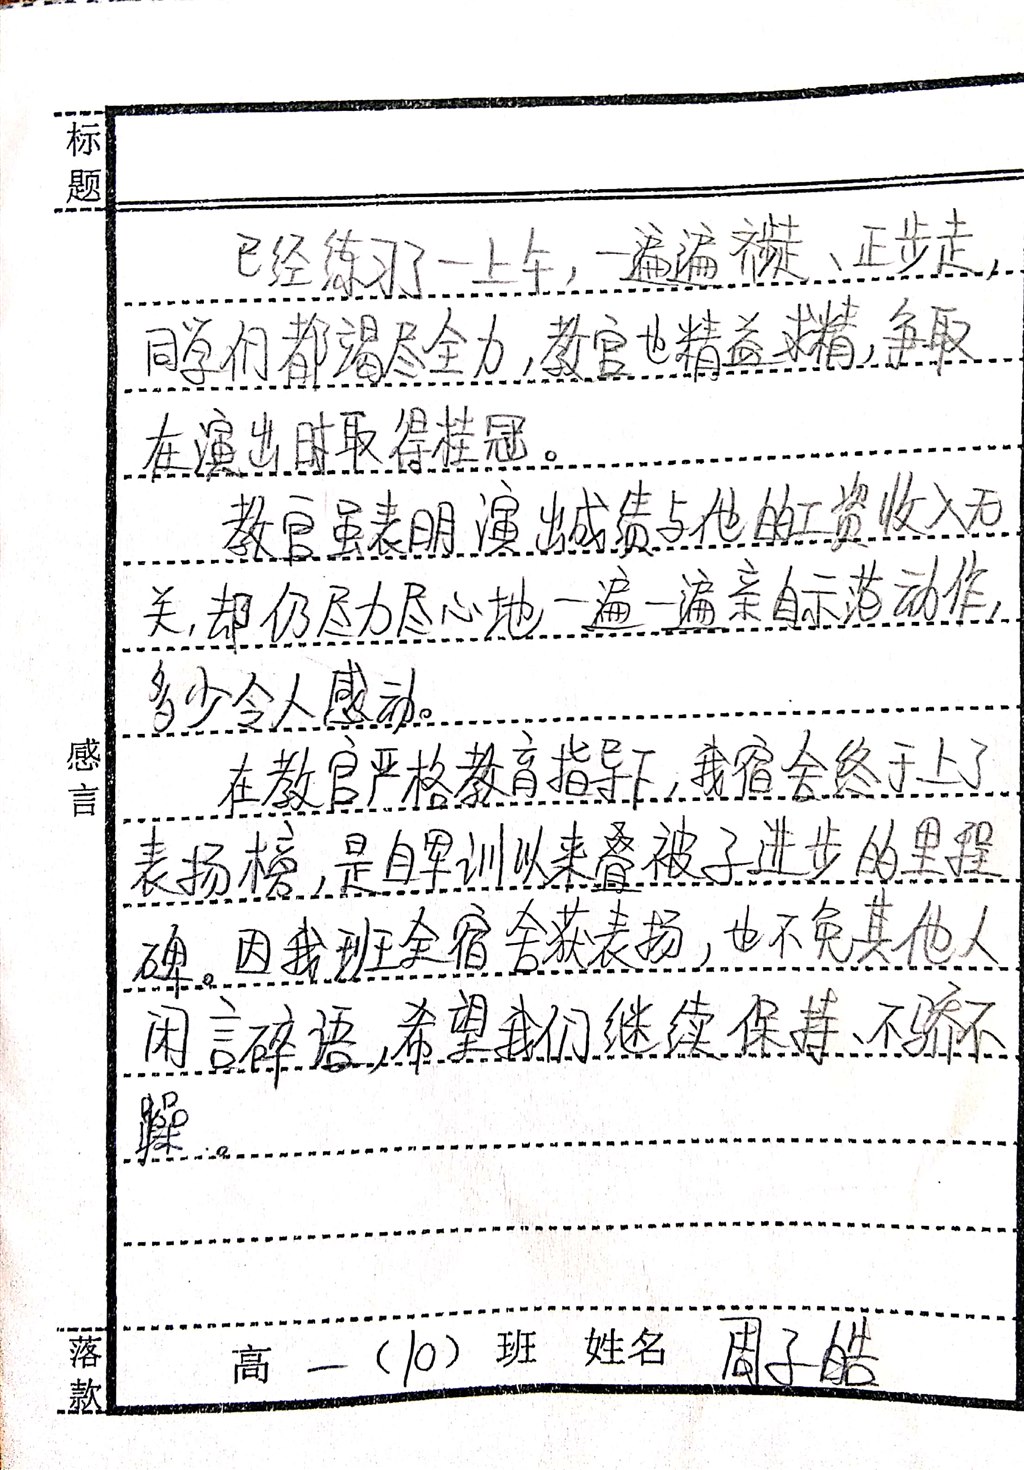 标题
已经练习了一上午，一遍遍齐步走、正步走，
同学们都竭尽全力，教官也精益求精，争取
在演出时取得桂冠。
教官虽表明演出成绩与他的工资收入无
关，却仍尽力尽心地一遍一遍亲自示范动作，
多少令人感动。
感言
在教官严格教育指导下，我宿舍终于上了
表扬榜，是自军训以来叠被子进步的里程
碑。因我班全宿舍获表扬，也不免其他人
闲言碎语，希望我们继续保持、不骄不
躁。
落款
高一（10）班 姓名 周子皓